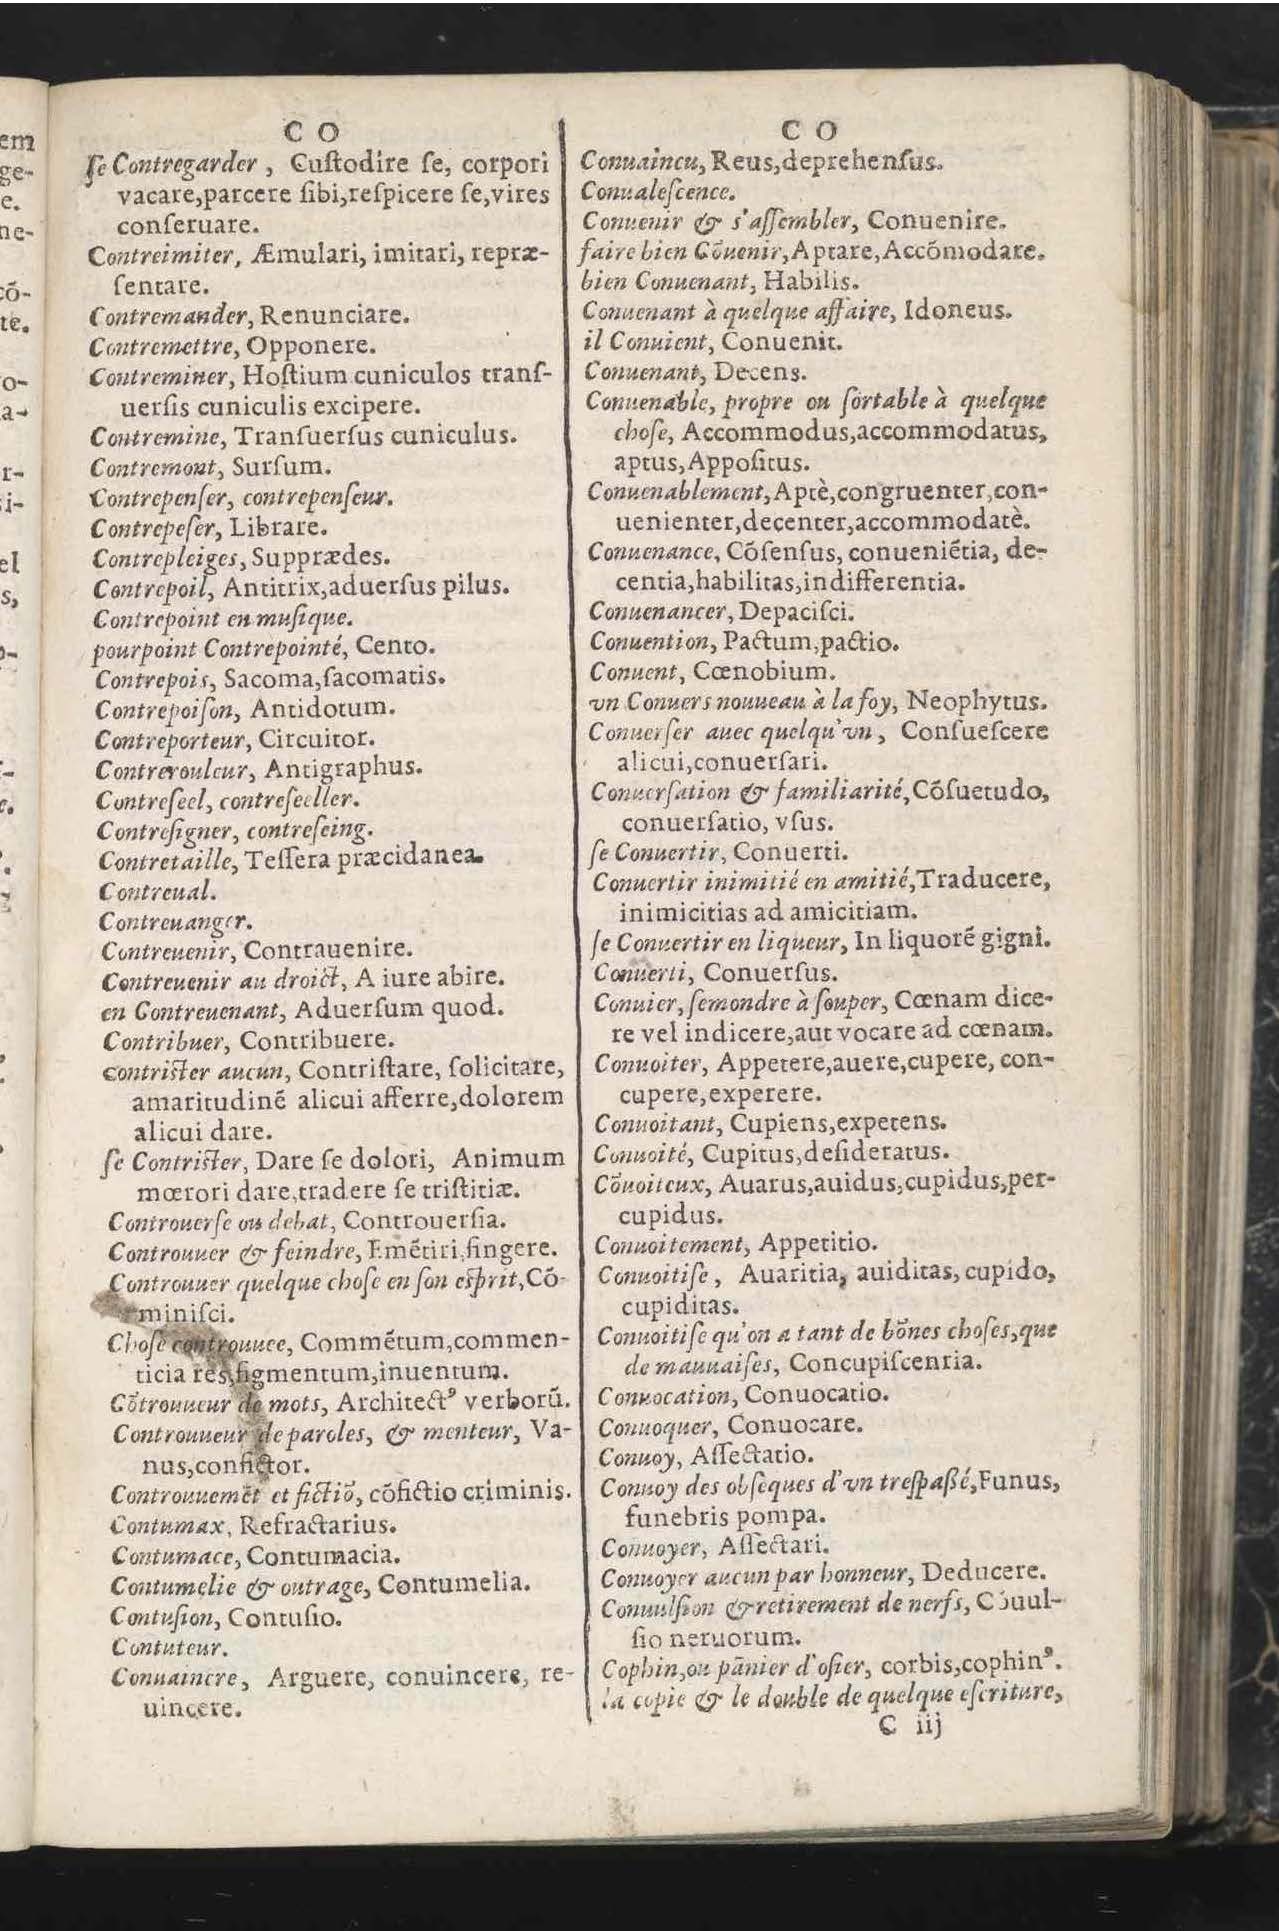 C O
ſe Contregarder, Cuſtodire ſe, corpori
vacare, parcere ſibi, reſpicere ſe, vires
conſeruare.
Contreimiter, Æmulari, imitari, repræ-
ſentare.
Contremander, Renunciare.
Contremettre, Opponere.
Contreminer, Hoſtium cuniculos tranſ-
uerſis cuniculis excipere.
Contremine, Tranſuerſus cuniculus.
Contremont, Surſum.
Contrepenſer, contrepenſeur.
Contrepeſer, Librare.
Contrepleiges, Supprædes.
Contrepoil, Antitrix, aduerſus pilus.
Contrepoint en muſique.
pourpoint Contrepointé, Cento.
Contrepois, Sacoma, ſacomatis.
Contrepoiſon, Antidotum.
Contreporteur, Circuitor.
Contrerouleur, Antigraphus.
Contreſeel, contreſeeller.
Contreſigner, contreſeing.
Contretaille, Teſſera præcidanea.
Contreual.
Contreuanger.
Contreuenir, Contrauenire.
Contreuenir au droict, A iure abire.
en Contreuenant, Aduerſum quod.
Contribuer, Contribuere.
contriſter aucun, Contriſtare, ſolicitare,
amaritudinē alicui afferre, dolorem
alicui dare.
ſe Contriſter, Dare ſe dolori, Animum
mœrori dare, tradere ſe triſtitiæ.
Controuerſe ou debat, Controuerſia.
Controuuer & feindre, Emētiri, fingere.
Controuuer quelque choſe en ſon eſprit, Cō-
miniſci.
Choſe controuuee, Commētum, commen-
ticia res, figmentum, inuentum.
Cōtrouueur de mots, Architectꝰ verborū.
Controuueur de paroles, & menteur, Va-
nus, confictor.
Controuuemēt et fictiō, cōfictio criminis.
Contumax, Refractarius.
Contumace, Contumacia.
Contumelie & outrage, Contumelia.
Contuſion, Contuſio.
Contuteur.
Conuaincre, Arguere, conuincere, re-
uincere.
C O
Conuaincu, Reus, deprehenſus.
Conualeſcence.
Conuenir & s'aſſembler, Conuenire.
faire bien Cōuenir, Aptare, Accōmodare.
bien Conuenant, Habilis.
Conuenant à quelque affaire, Idoneus.
il Conuient, Conuenit.
Conuenant, Decens.
Conuenable, propre ou ſortable à quelque
choſe, Accommodus, accommodatus,
aptus, Appoſitus.
Conuenablement, Aptè, congruenter, con-
uenienter, decenter, accommodatè.
Conuenance, Cōſenſus, conueniētia, de-
centia, habilitas, indifferentia.
Conuenancer, Depaciſci.
Conuention, Pactum, pactio.
Conuent, Cœnobium.
vn Conuers nouueau à la foy, Neophytus.
Conuerſer auec quelqu'vn, Conſueſcere
alicui, conuerſari.
Conuerſation & familiarité, Cōſuetudo,
conuerſatio, vſus.
ſe Conuertir, Conuerti.
Conuertir inimitié en amitié, Traducere,
inimicitias ad amicitiam.
ſe Conuertir en liqueur, In liquorē gigni.
Conuerti, Conuerſus.
Conuier, ſemondre à ſouper, Cœnam dice-
re vel indicere, aut vocare ad cœnam.
Conuoiter, Appetere, auere, cupere, con-
cupere, experere.
Conuoitant, Cupiens, expetens.
Conuoité, Cupitus, deſideratus.
Cōuoiteux, Auarus, auidus, cupidus, per-
cupidus.
Conuoitement, Appetitio.
Conuoitiſe, Auaritia, auiditas, cupido,
cupiditas.
Conuoitiſe qu'on a tant de bōnes choſes, que
de mauuaiſes, Concupiſcentia.
Conuocation, Conuocatio.
Conuoquer, Conuocare.
Conuoy, Aſſectatio.
Conuoy des obſeques d'vn treſpaßé, Funus,
funebris pompa.
Conuoyer, Aſſectari.
Conuoyer aucun par honneur, Deducere.
Conuulſion & retirement de nerfs, Cōuul-
ſio neruorum.
Cophin, ou pānier d'oſier, corbis, cophinꝰ.
la copie & le double de quelque eſcriture,
C iij